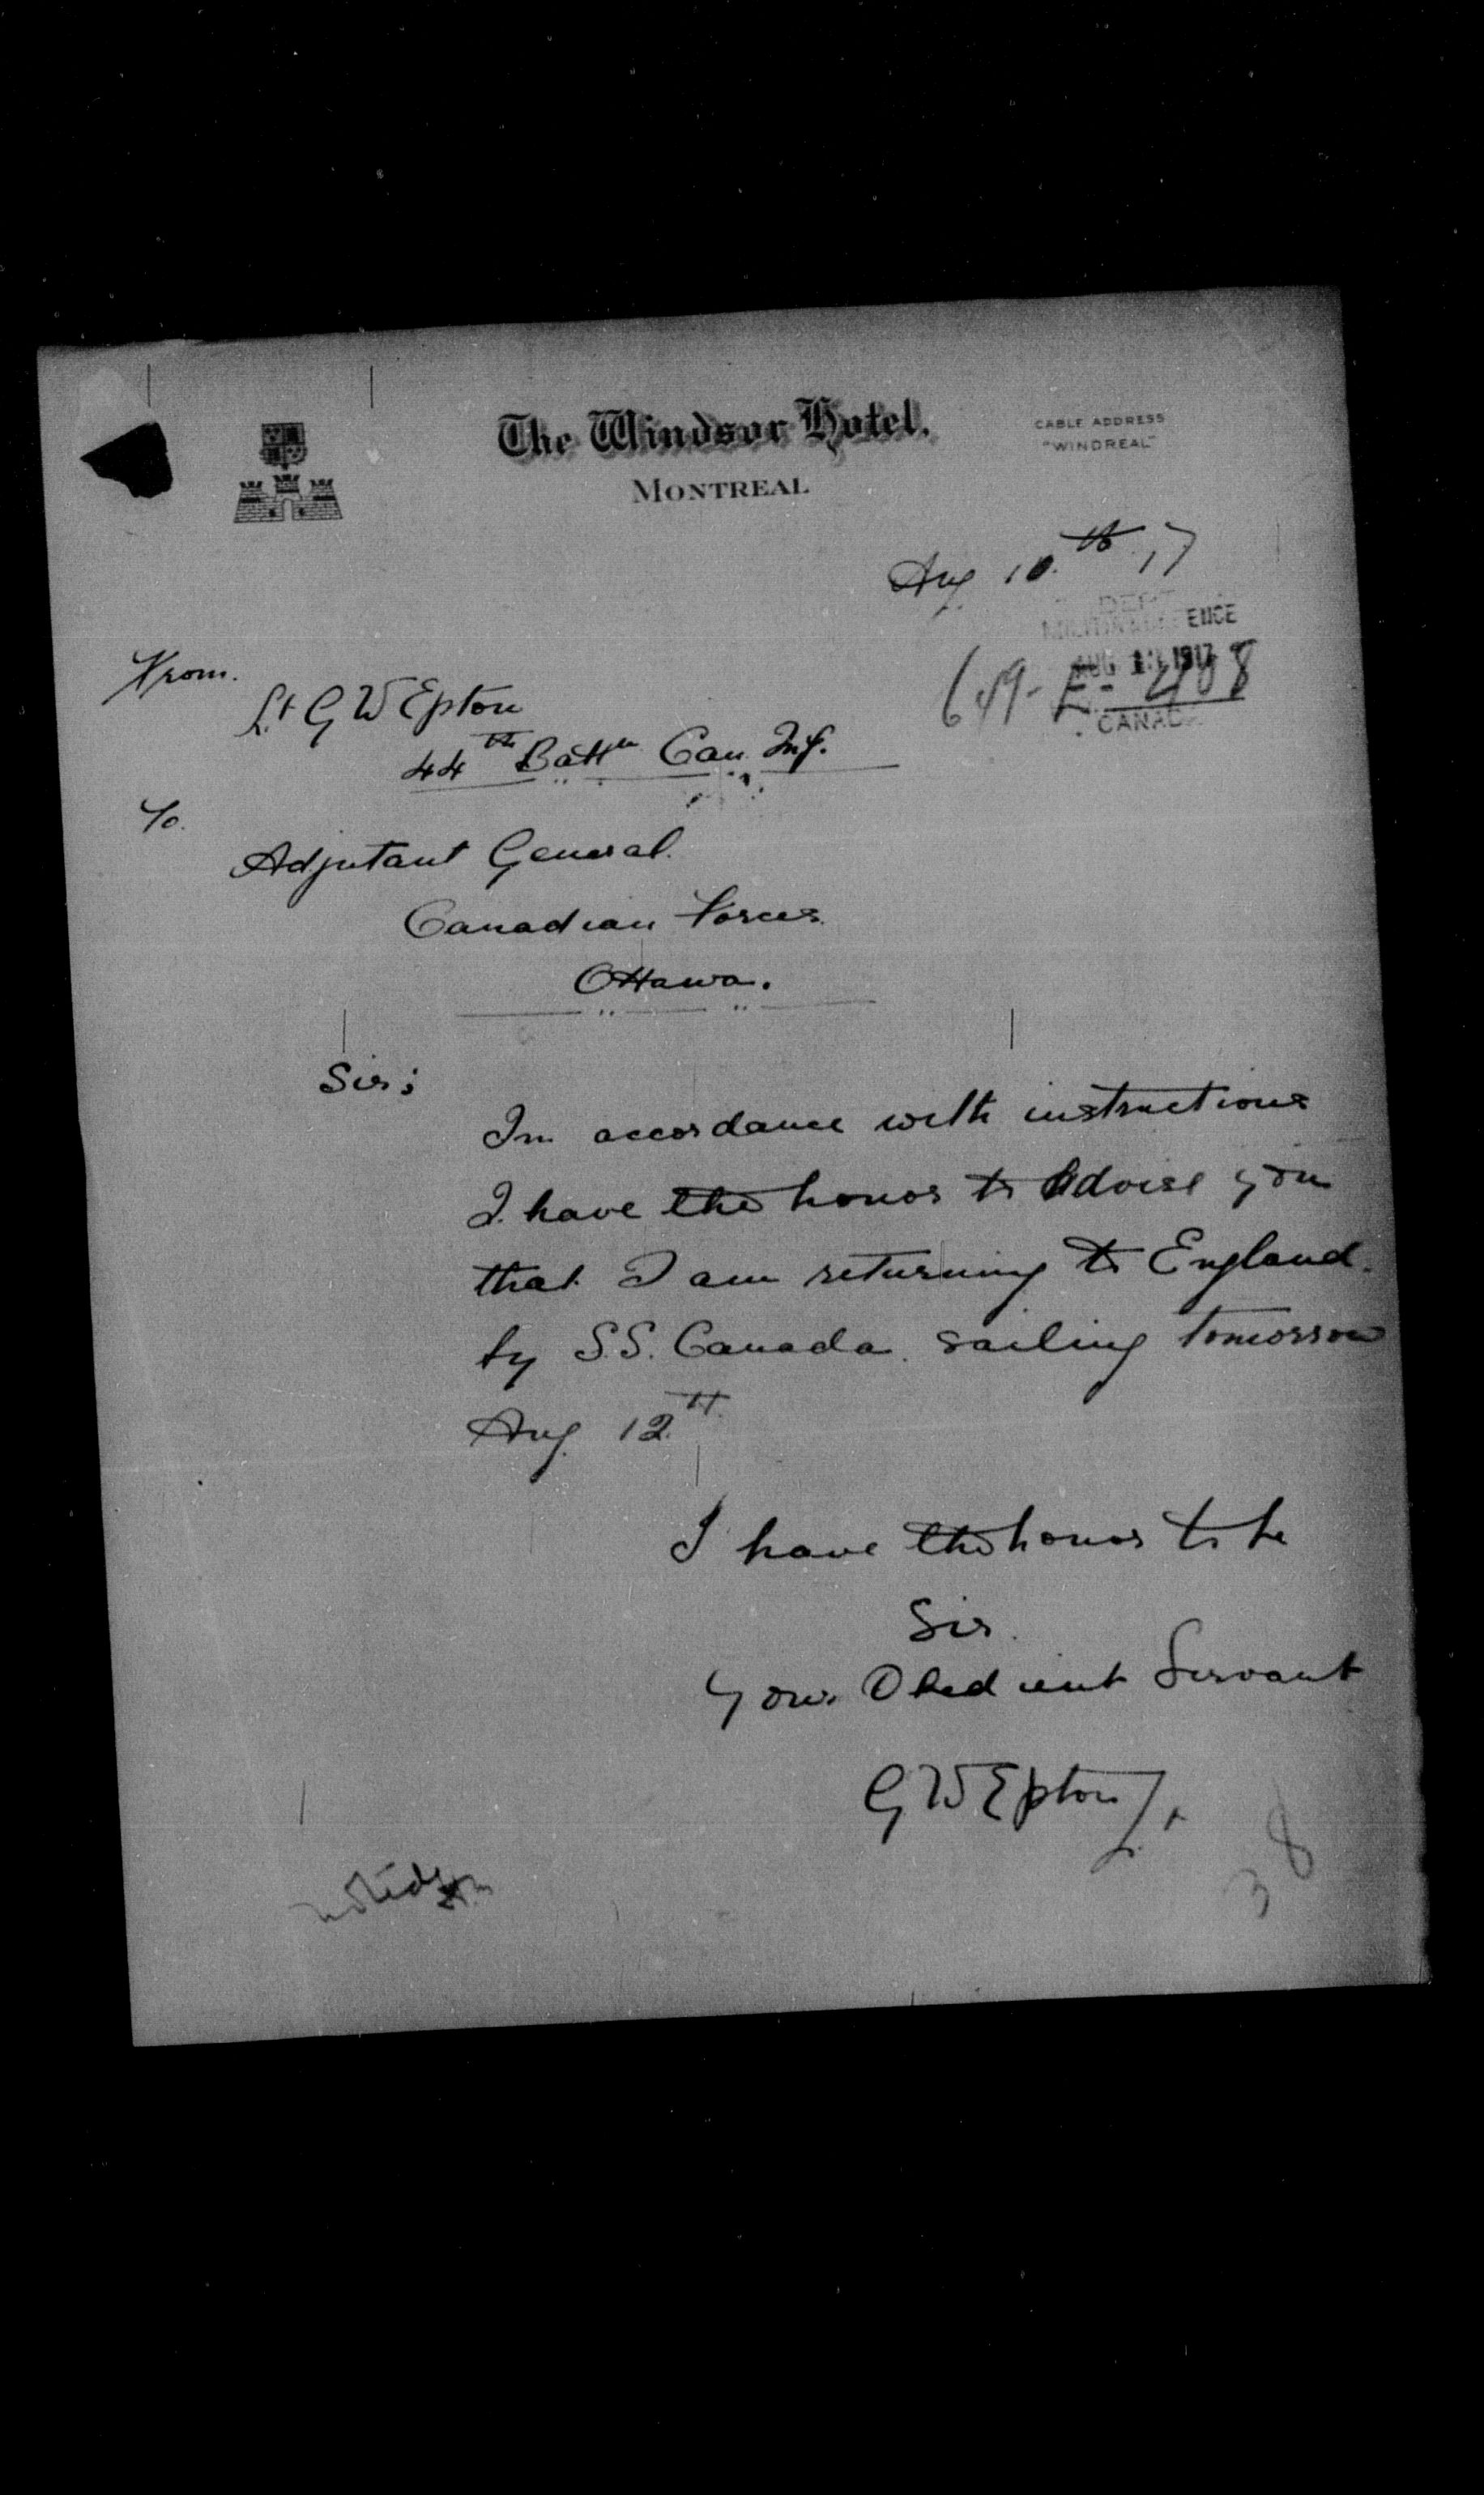 The Windsor Hotel.
MONTREAL
CABLE ADDRESS
"WINDREAL"
Aug 10.th 17
DEPT
MILITIA & DEFENCE
AUG 1 1917
CANADA
649-E-408
From.
Lt G W Epton
44th Battn Can. Inf.
To.
Adjutant General.
Canadian Forces.
Ottawa.
Sir;
In accordance with instructions
I have the honor to advise you
that I am returning to England.
by S.S. Canada. sailing tomorrow
Aug. 12th
I have the honor to be
Sir.
Your Obedient Servant
G W Epton Lt.
38